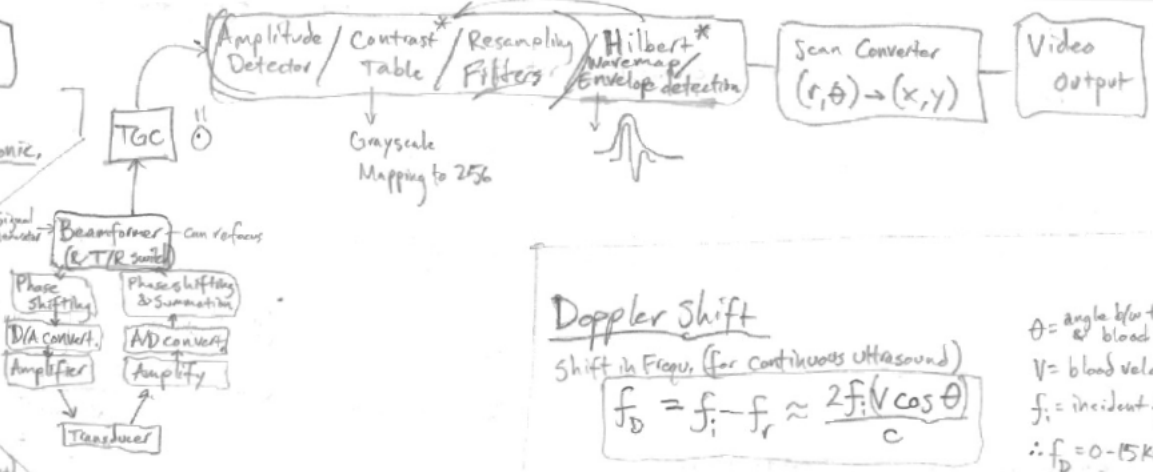 Amplitude Detector / Contrast* Table / Resampling Filters / Hilbert* Wavemap/ Envelope detection
Scan Converter
(r,θ) → (x,y)
Video
Output
TGC
Grayscale
Mapping to 256
Beamformer
(& T/R switch)
can refocus
Phase
Shifting
Phase shifting
& Summation
D/A convert.
A/D convert.
Amplifier
Amplify
Transducer
Doppler Shift
Shift in Frequ. (for continuous ultrasound)
f_D = f_i - f_r ≈ 2f_i(V cos θ) / c
θ = angle b/w
& blood
V = blood
f_i = incident
∴ f_D = 0-15